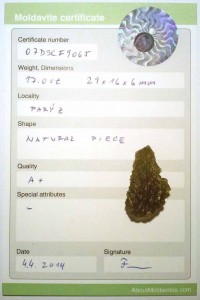 Moldavite certificate
Certificate number
07DSCF9065
Weight, Dimensions
17.0ct 29x16x6mm
Locality
PAŘÍZ
Shape
NATURAL PIECE
Quality
A+
Special attributes
–
Date
Signature
4.4. 2014
AboutMoldavites.com